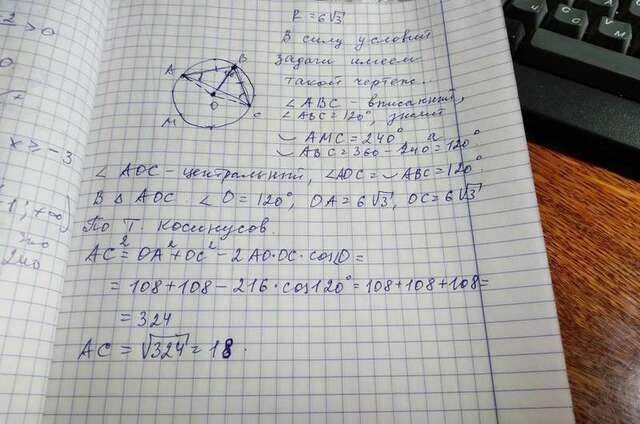 2 > 0
R = 6√3
В силу условий
задачи имеем
такой чертеж...
A
B
O
C
M
∠ABC - вписанный,
∠ABC = 120°, значит
◡ AMC = 240° а
◡ ABC = 360 - 240 = 120°
x > -3
∠ AOC - центральный, ∠AOC = ◡ ABC = 120°
В Δ AOC ∠O = 120°, OA = 6√3, OC = 6√3
По Т. Косинусов
AC² = OA² + OC² - 2AO·OC·cosO =
= 108 + 108 - 216 · cos120° = 108 + 108 + 108 =
= 324
AC = √324 = 18.